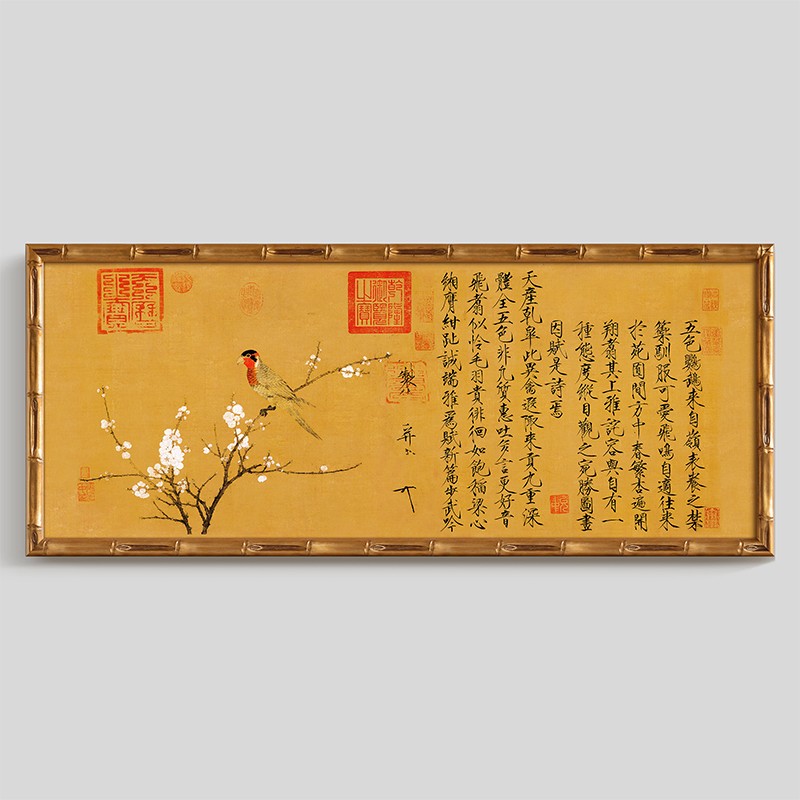 五色鸚鵡來自嶺表養之禁
籞馴服可愛飛鳴自適往來
於苑囿間方中春繁杏遍開
翔翥其上雅詫容與自有一
種態度縱目觀之宛勝圖畫
因賦是詩焉
天產乾皋此異禽遐陬來貢九重深
體全五色非凡質惠吐多言更好音
飛翥似怜毛羽貴徘徊如飽稻粱心
緗膺紺趾誠端雅為賦新篇步武吟
製
乾隆御覽之寶